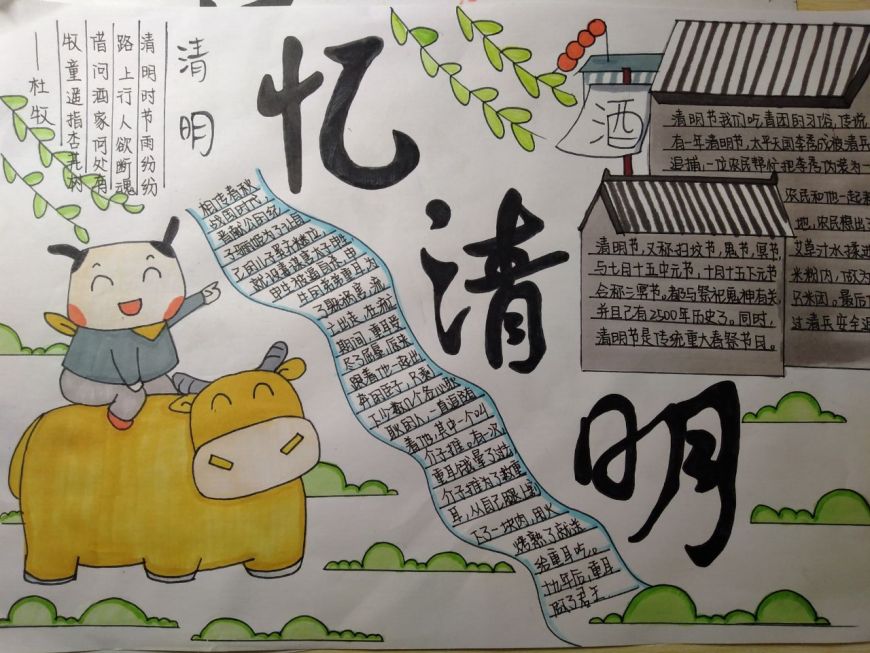 清明
清明时节雨纷纷
路上行人欲断魂
借问酒家何处有
牧童遥指杏花村
——杜牧
忆清明
相传春秋
战国时代,
晋献公的妃
子骊姬为了让自
己的儿子奚齐继位,
就设毒谋害太子申生
申生被逼自杀。申
生的弟弟重耳,为
了躲祸害,流
亡出走。在流亡
期间,重耳受
尽了屈辱。原来
跟着他一起出
奔的臣子,只剩
下少数几个忠心耿
耿的人,一直追随
着他。其中一个叫
介子推。有一次
重耳饿晕了过去
介子推为了救重
耳,从自己腿上割
下了一块肉,用火
烤熟了就送
给重耳吃。
十九年后,重耳
做了君主
酒
清明节我们吃青团的习俗,传说
有一年清明节,太平天国李秀成被清兵
追捕,一位农民帮忙把李秀成伪装为一
农民和他一起耕
地,农民想出了
艾草汁水揉进
米粉内,做为
只米团。最后
过清兵安全返
清明节,又称扫坟节,鬼节,冥节,
与七月十五中元节,十月十五下元节
合称三冥节。都与祭祀鬼神有关
并且已有2500年历史了。同时,
清明节是传统重大春祭节日。